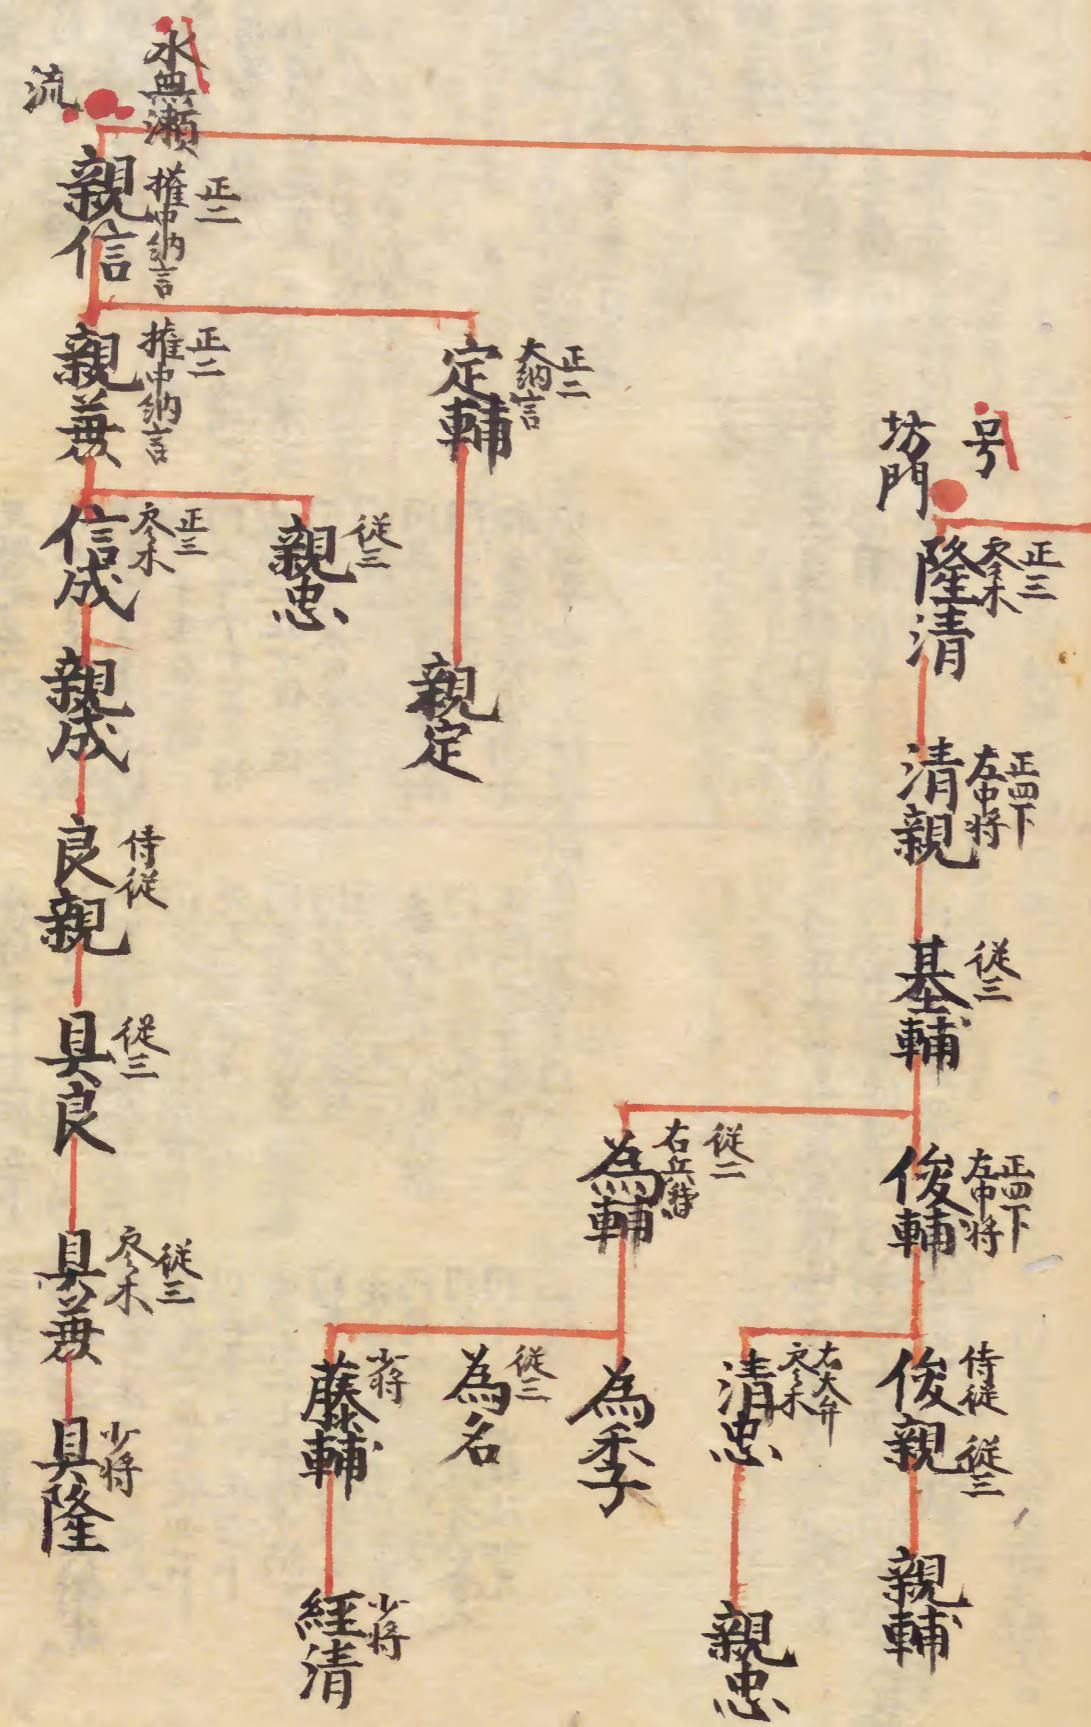 号
坊門
隆清
正三
参木
清親
正四下
左中将
基輔
従三
俊輔
正四下
左中将
俊親
侍従
従三
親輔
清忠
右大弁
参木
親忠
為輔
従二
右兵督
為季
為名
従三
藤輔
少将
経清
少将
水無瀬
流
親信
正二
権中納言
定輔
正二
大納言
親定
親兼
正二
権中納言
親忠
従三
信成
正三
参木
親成
良親
侍従
具良
従三
具兼
従三
参木
具隆
少将